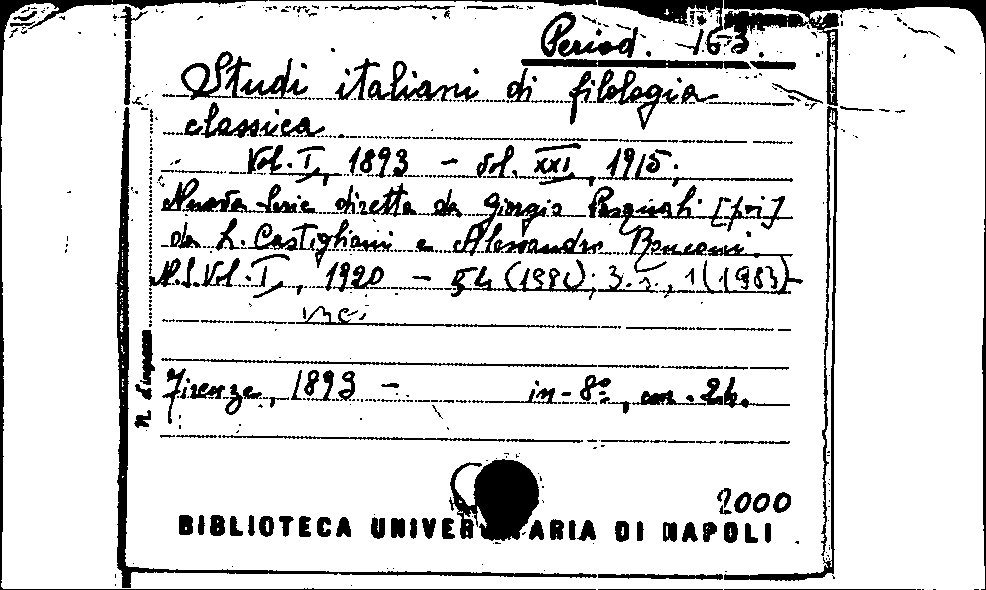 Period. 163.
Studi italiani di filologia
classica.
Vol. I, 1893 - Vol. XXI, 1915;
Nuova Serie diretta da Giorgio Pasquali [poi]
da L. Castiglioni e Alessandro Ronconi.
N.S. Vol. I, 1920 - 54 (1982); 3. s., 1 (1983)-
Firenze, 1893 - in-8º,
2000
N. d'ingresso
BIBLIOTECA UNIVER ARIA DI NAPOLI